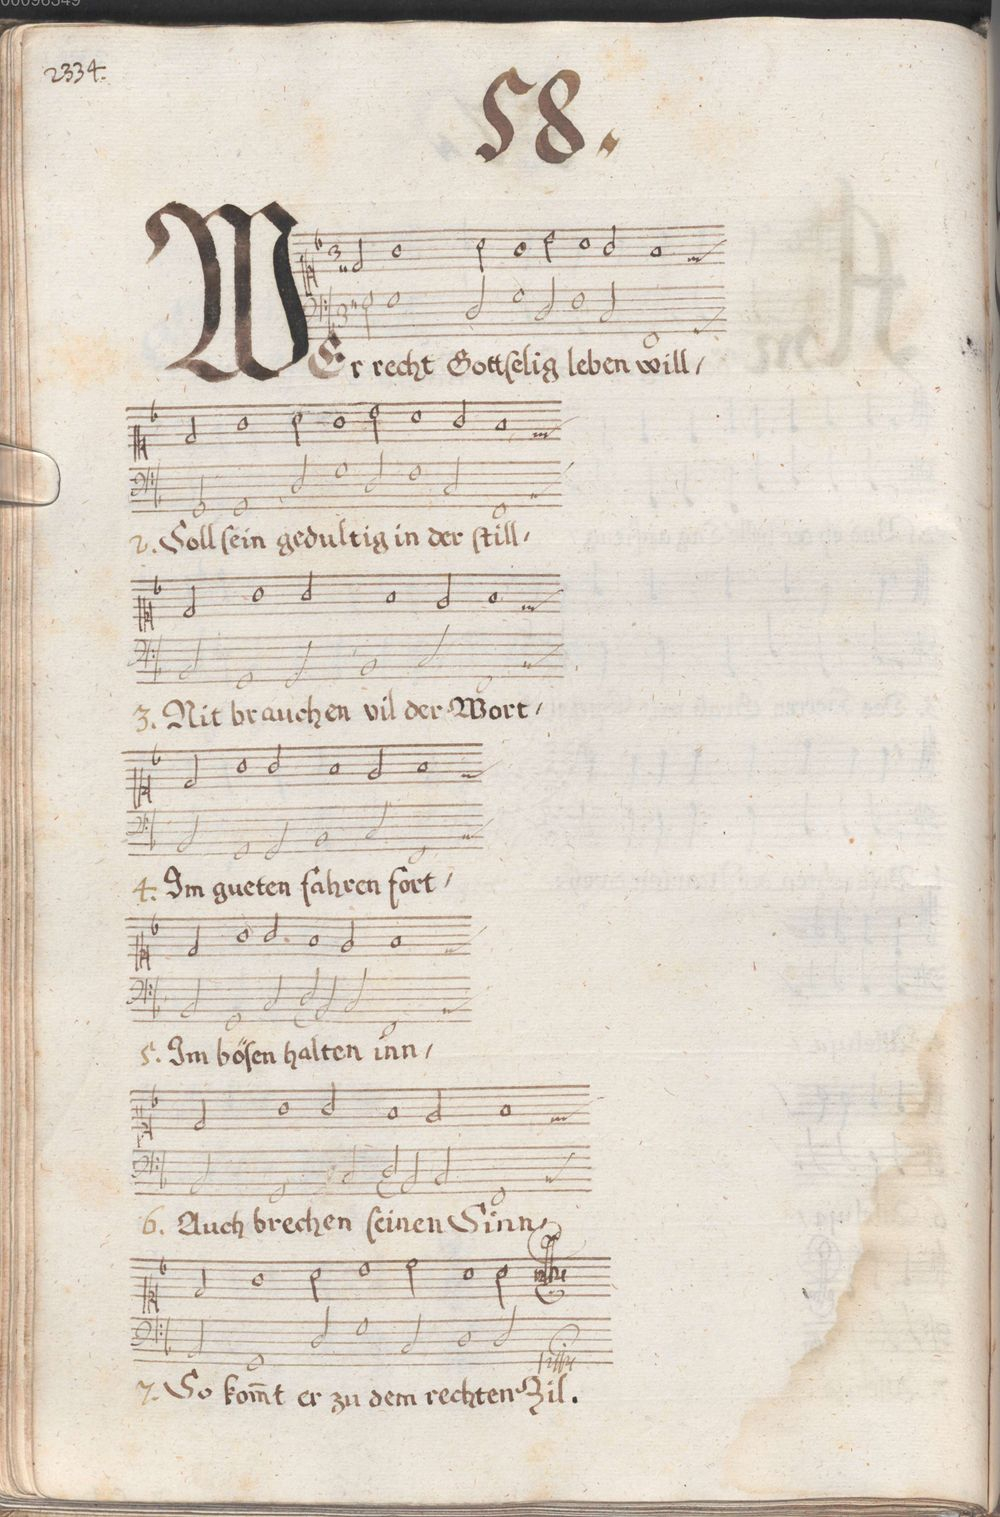 00096349
2334.
58.
WEr recht Gottselig leben will/
2. Soll sein gedultig in der still/
3. Nit brauchen vil der Wort/
4. Im gueten fahren fort/
5. Im bösen halten inn/
6. Auch brechen seinen Sinn/
7. So kom̄t er zu dem rechten Zil.